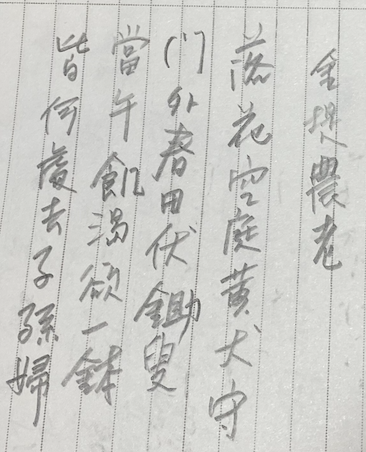 金堤農老
落花空庭黃犬守
門外春田伏鋤叟
當午飢渴欲一鉢
皆何處去子孫婦